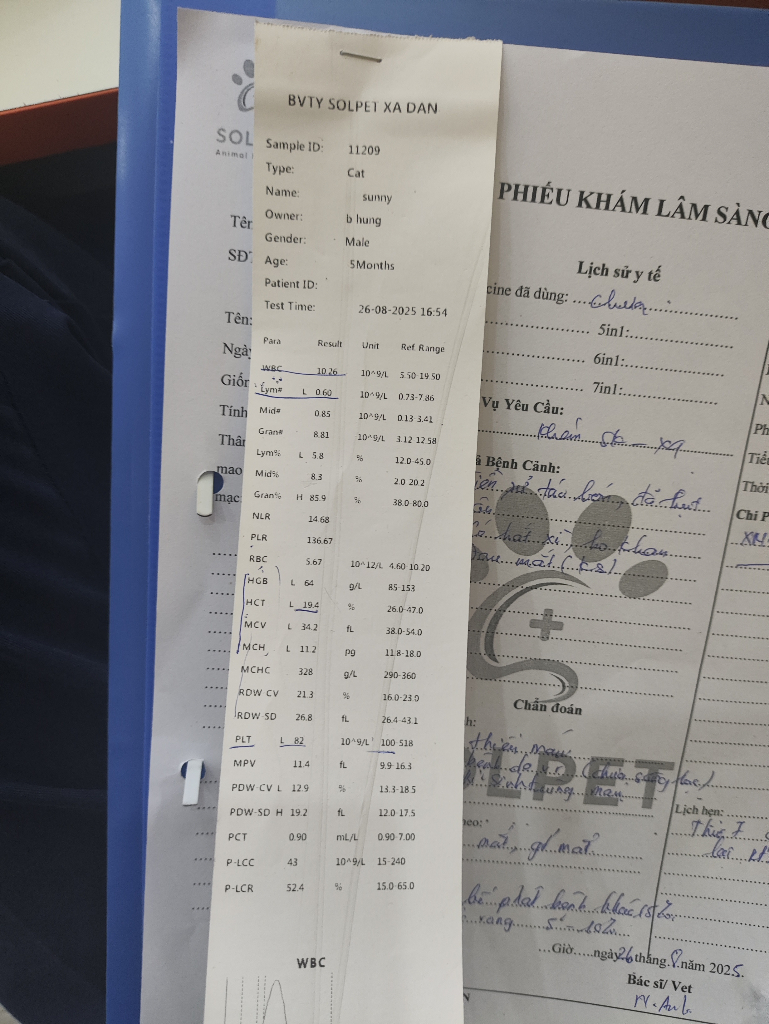 BVTY SOLPET XA DAN
Sample ID: 11209
Type: Cat
Name: sunny
Owner: b hung
Gender: Male
Age: 5Months
Patient ID:
Test Time: 26-08-2025 16:54
Para Result Unit Ref. Range
WBC 10.26 10^9/L 5.50-19.50
Lym# L 0.60 10^9/L 0.73-7.86
Mid# 0.85 10^9/L 0.13-3.41
Gran# 8.81 10^9/L 3.12-12.58
Lym% L 5.8 % 12.0-45.0
Mid% 8.3 % 2.0-20.2
Gran% H 85.9 % 38.0-80.0
NLR 14.68
PLR 136.67
RBC 5.67 10^12/L 4.60-10.20
HGB L 64 g/L 85-153
HCT L 19.4 % 26.0-47.0
MCV L 34.2 fL 38.0-54.0
MCH L 11.2 pg 11.8-18.0
MCHC 328 g/L 290-360
RDW-CV 21.3 % 16.0-23.0
RDW-SD 26.8 fL 26.4-43.1
PLT L 82 10^9/L 100-518
MPV 11.4 fL 9.9-16.3
PDW-CV L 12.9 % 13.3-18.5
PDW-SD H 19.2 fL 12.0-17.5
PCT 0.90 mL/L 0.90-7.00
P-LCC 43 10^9/L 15-240
P-LCR 52.4 % 15.0-65.0
WBC
SOL
Animal
Tên
SĐT
Tên:
Ngày
Giốn
Tính
Thân
mao
mạc:
PHIẾU KHÁM LÂM SÀNG
Lịch sử y tế
cine đã dùng: chưa
5in1:
6in1:
7in1:
Vụ Yêu Cầu:
khám sk - xq
à Bệnh Cảnh:
hắt xì ho khan
mắt
Chẩn đoán
thiếu máu
(chưa sàng lọc)
kí sinh trùng máu
LPET
mắt, gỉ mắt
phát bệnh khác 15%
5 - 10%
Giờ.....ngày 26 tháng 8 năm 2025
Bác sĩ/ Vet
N. Anh
Lịch hẹn:
Thứ 7
lại
Ph
Tiề
Thời
Chi P
XN